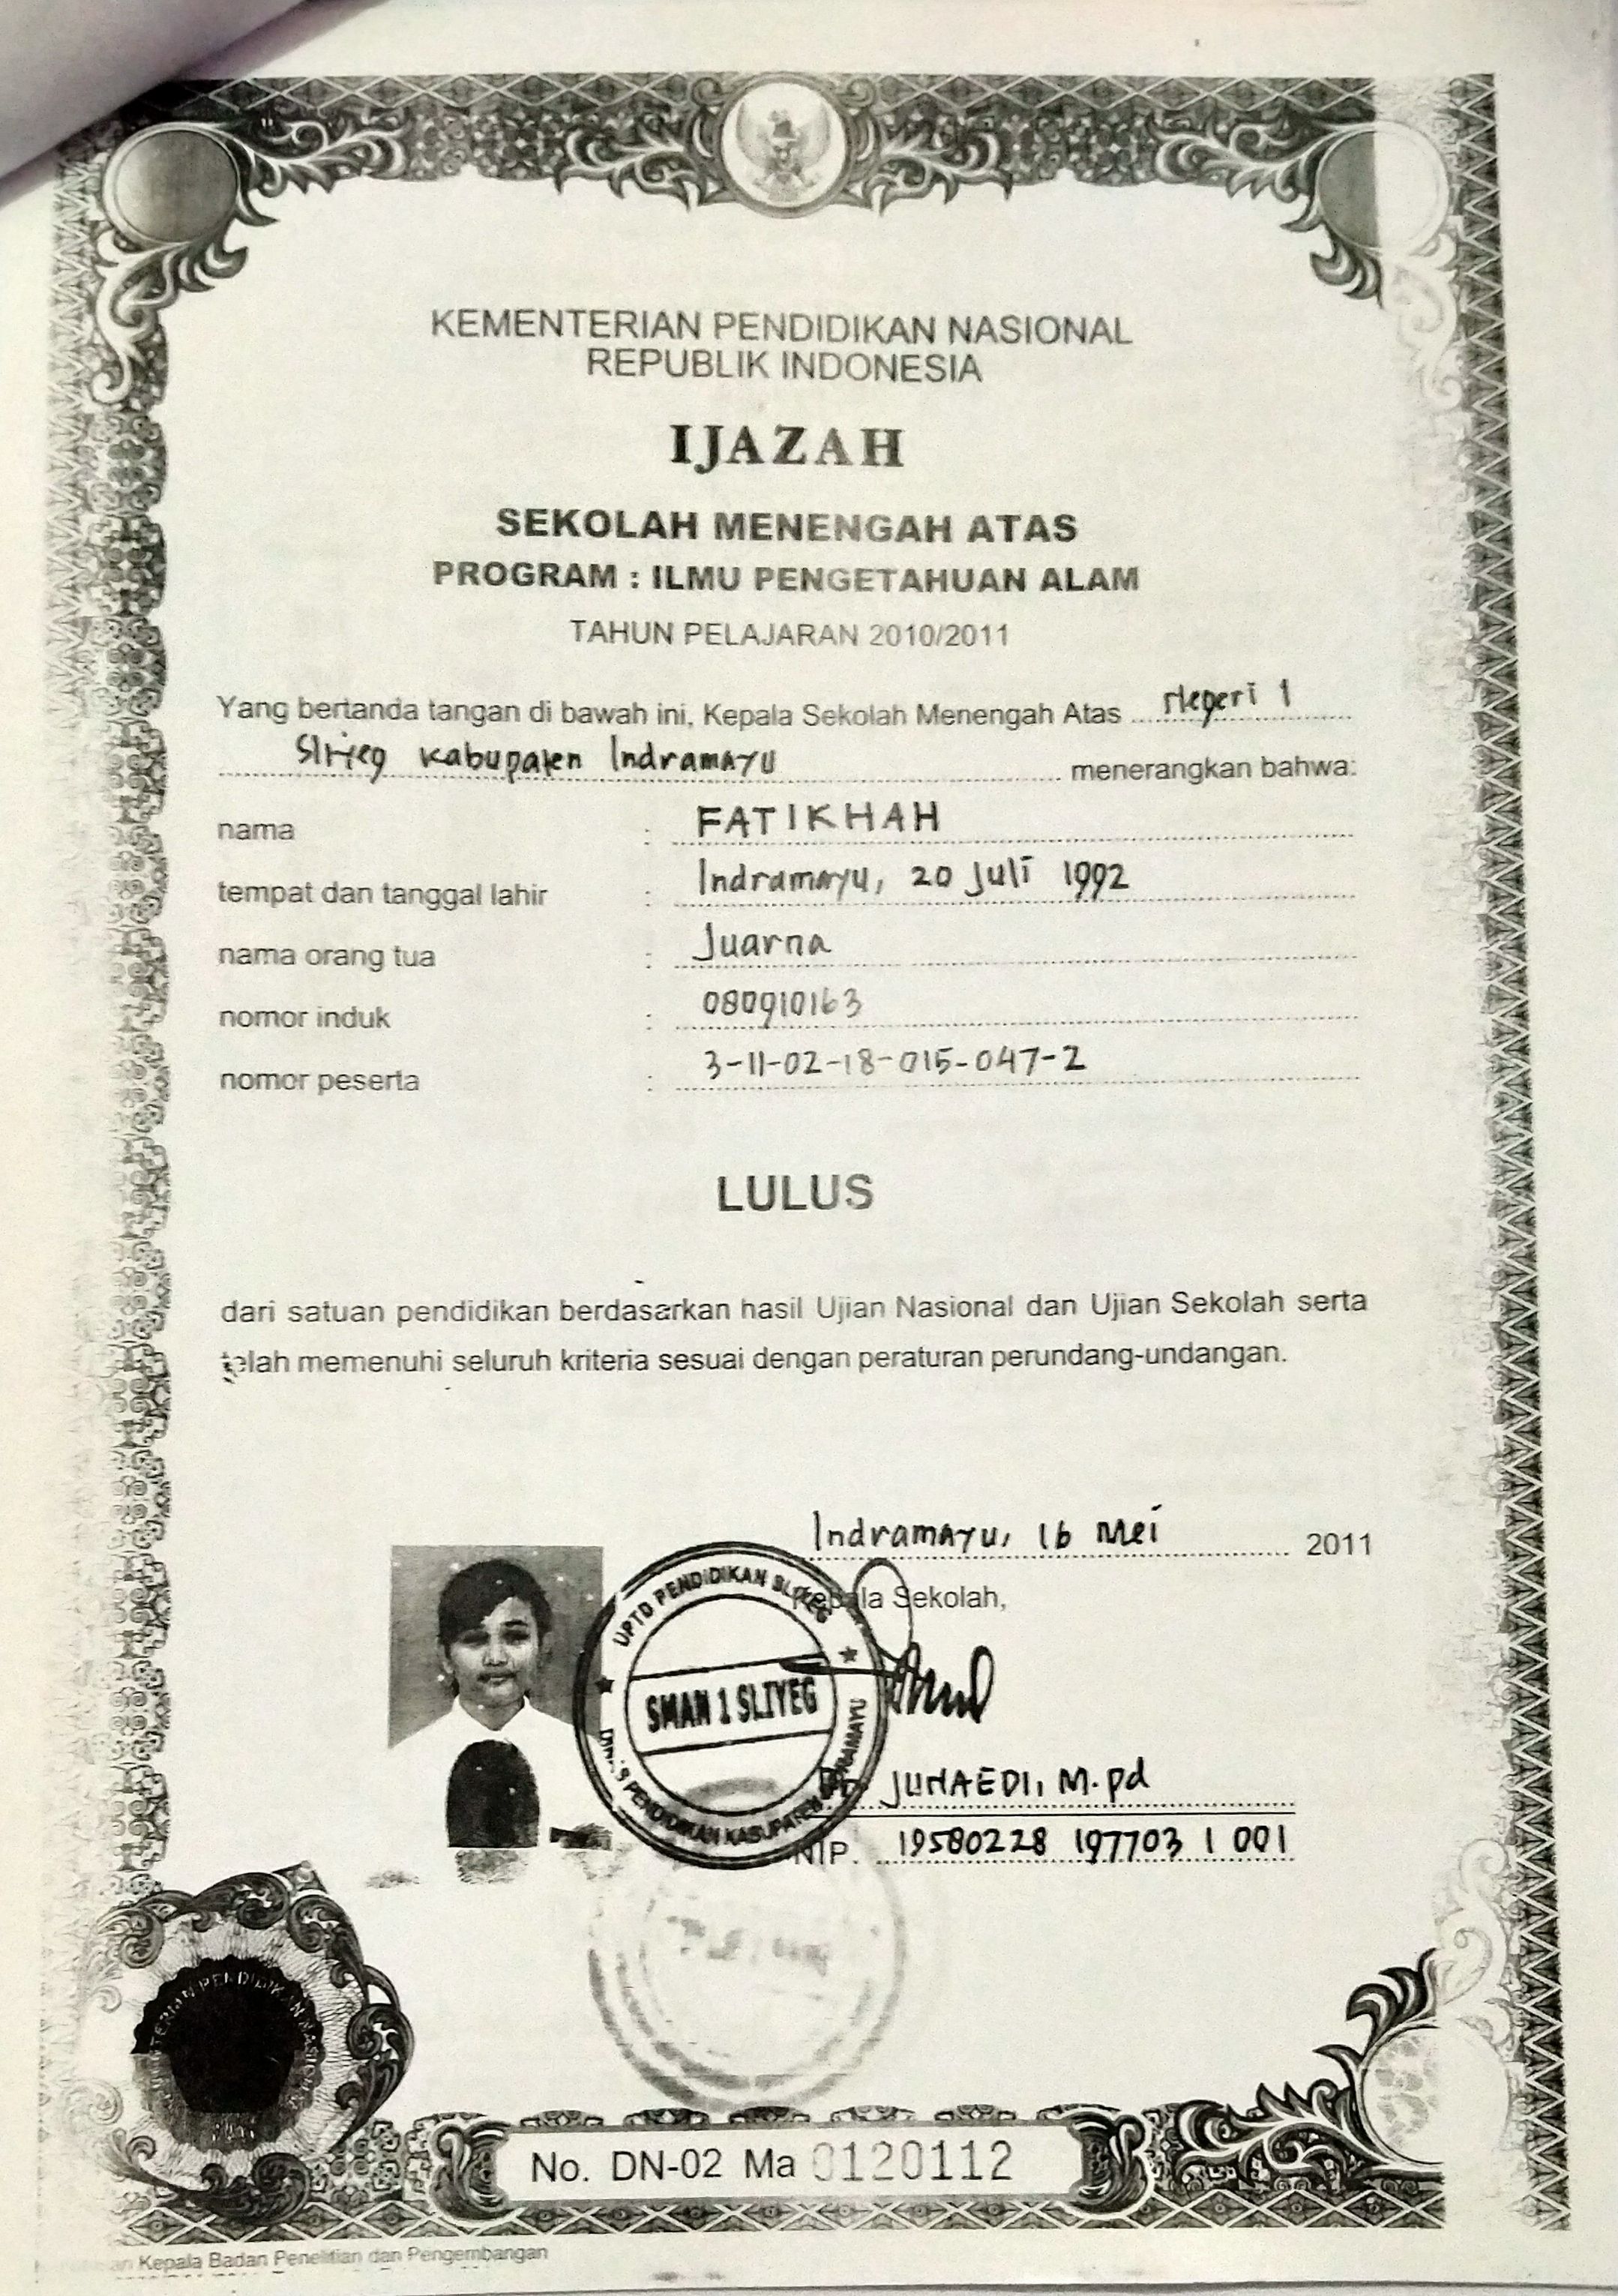 KEMENTERIAN PENDIDIKAN NASIONAL
REPUBLIK INDONESIA
IJAZAH
SEKOLAH MENENGAH ATAS
PROGRAM : ILMU PENGETAHUAN ALAM
TAHUN PELAJARAN 2010/2011
Yang bertanda tangan di bawah ini, Kepala Sekolah Menengah Atas Negeri 1
Sliyeg Kabupaten Indramayu menerangkan bahwa:
nama : FATIKHAH
tempat dan tanggal lahir : Indramayu, 20 Juli 1992
nama orang tua : Juarna
nomor induk : 080910163
nomor peserta : 3-11-02-18-015-047-2
LULUS
dari satuan pendidikan berdasarkan hasil Ujian Nasional dan Ujian Sekolah serta
telah memenuhi seluruh kriteria sesuai dengan peraturan perundang-undangan.
Indramayu, 16 Mei 2011
Kepala Sekolah,
UPTD PENDIDIKAN SLIYEG
SMAN 1 SLIYEG
DINAS PENDIDIKAN KABUPATEN INDRAMAYU
JUNAEDI, M.Pd
NIP. 19580228 197703 1 001
No. DN-02 Ma 0120112
Kepala Badan Penelitian dan Pengembangan